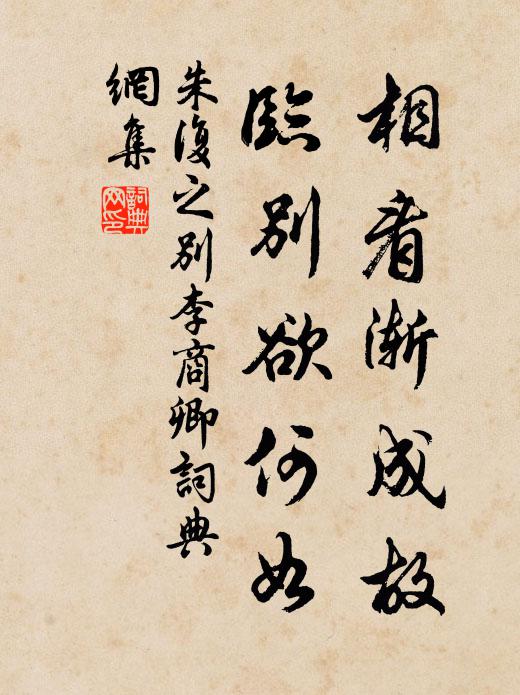 相看漸成故
臨別欲何如
朱復之別李商卿詞典
網集
詞典
网印